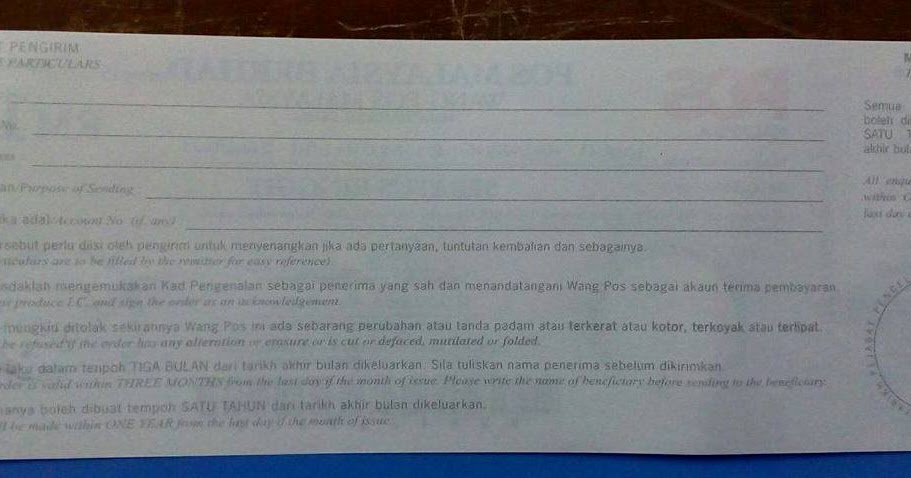 PENGIRIM
PARTICULARS
No.
an/Purpose of Sending
ika ada) Account No. (if any)
rsebut perlu diisi oleh pengirim untuk menyenangkan jika ada pertanyaan, tuntutan kembalian dan sebagainya.
rticulars are to be filled by the remitter for easy reference)
ndaklah mengemukakan Kad Pengenalan sebagai penerima yang sah dan menandatangani Wang Pos sebagai akaun terima pembayaran.
produce I.C. and sign the order as an acknowledgement.
mungkin ditolak sekirannya Wang Pos ini ada sebarang perubahan atau tanda padam atau terkerat atau kotor, terkoyak atau terlipat.
be refused if the order has any alteration or erasure or is cut or defaced, mutilated or folded.
laku dalam tempoh TIGA BULAN dari tarikh akhir bulan dikeluarkan. Sila tuliskan nama penerima sebelum dikirimkan.
rder is valid within THREE MONTHS from the last day if the month of issue. Please write the name of beneficiary before sending to the beneficiary.
hanya boleh dibuat tempoh SATU TAHUN dari tarikh akhir bulan dikeluarkan.
ll be made within ONE YEAR from the last day if the month of issue.
Semua
boleh di
SATU T
akhir bula
All enqu
within
last day